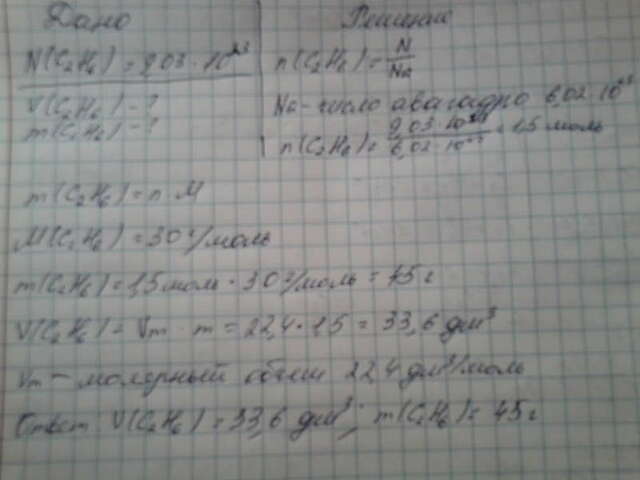 Дано
N(C₂H₆) = 9,03 · 10²³
V(C₂H₆) - ?
m(C₂H₆) - ?
Решение
n(C₂H₆) = N/Na
Na - число авагадро 6,02 · 10²³
n(C₂H₆) = 9,03 · 10²³ / 6,02 · 10²³ = 1,5 моль
m(C₂H₆) = n · M
M(C₂H₆) = 30 г/моль
m(C₂H₆) = 1,5 моль · 30 г/моль = 45 г
V(C₂H₆) = Vm · m = 22,4 · 1,5 = 33,6 дм³
Vm - молерный обем 22,4 дм³/моль
Ответ: V(C₂H₆) = 33,6 дм³; m(C₂H₆) = 45 г